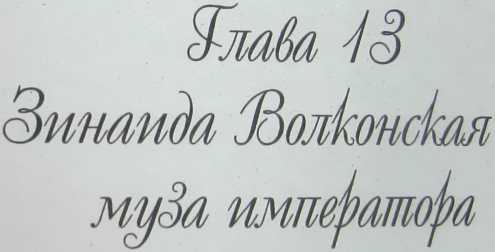 Глава 13
Зинаида Волконская
муза императора